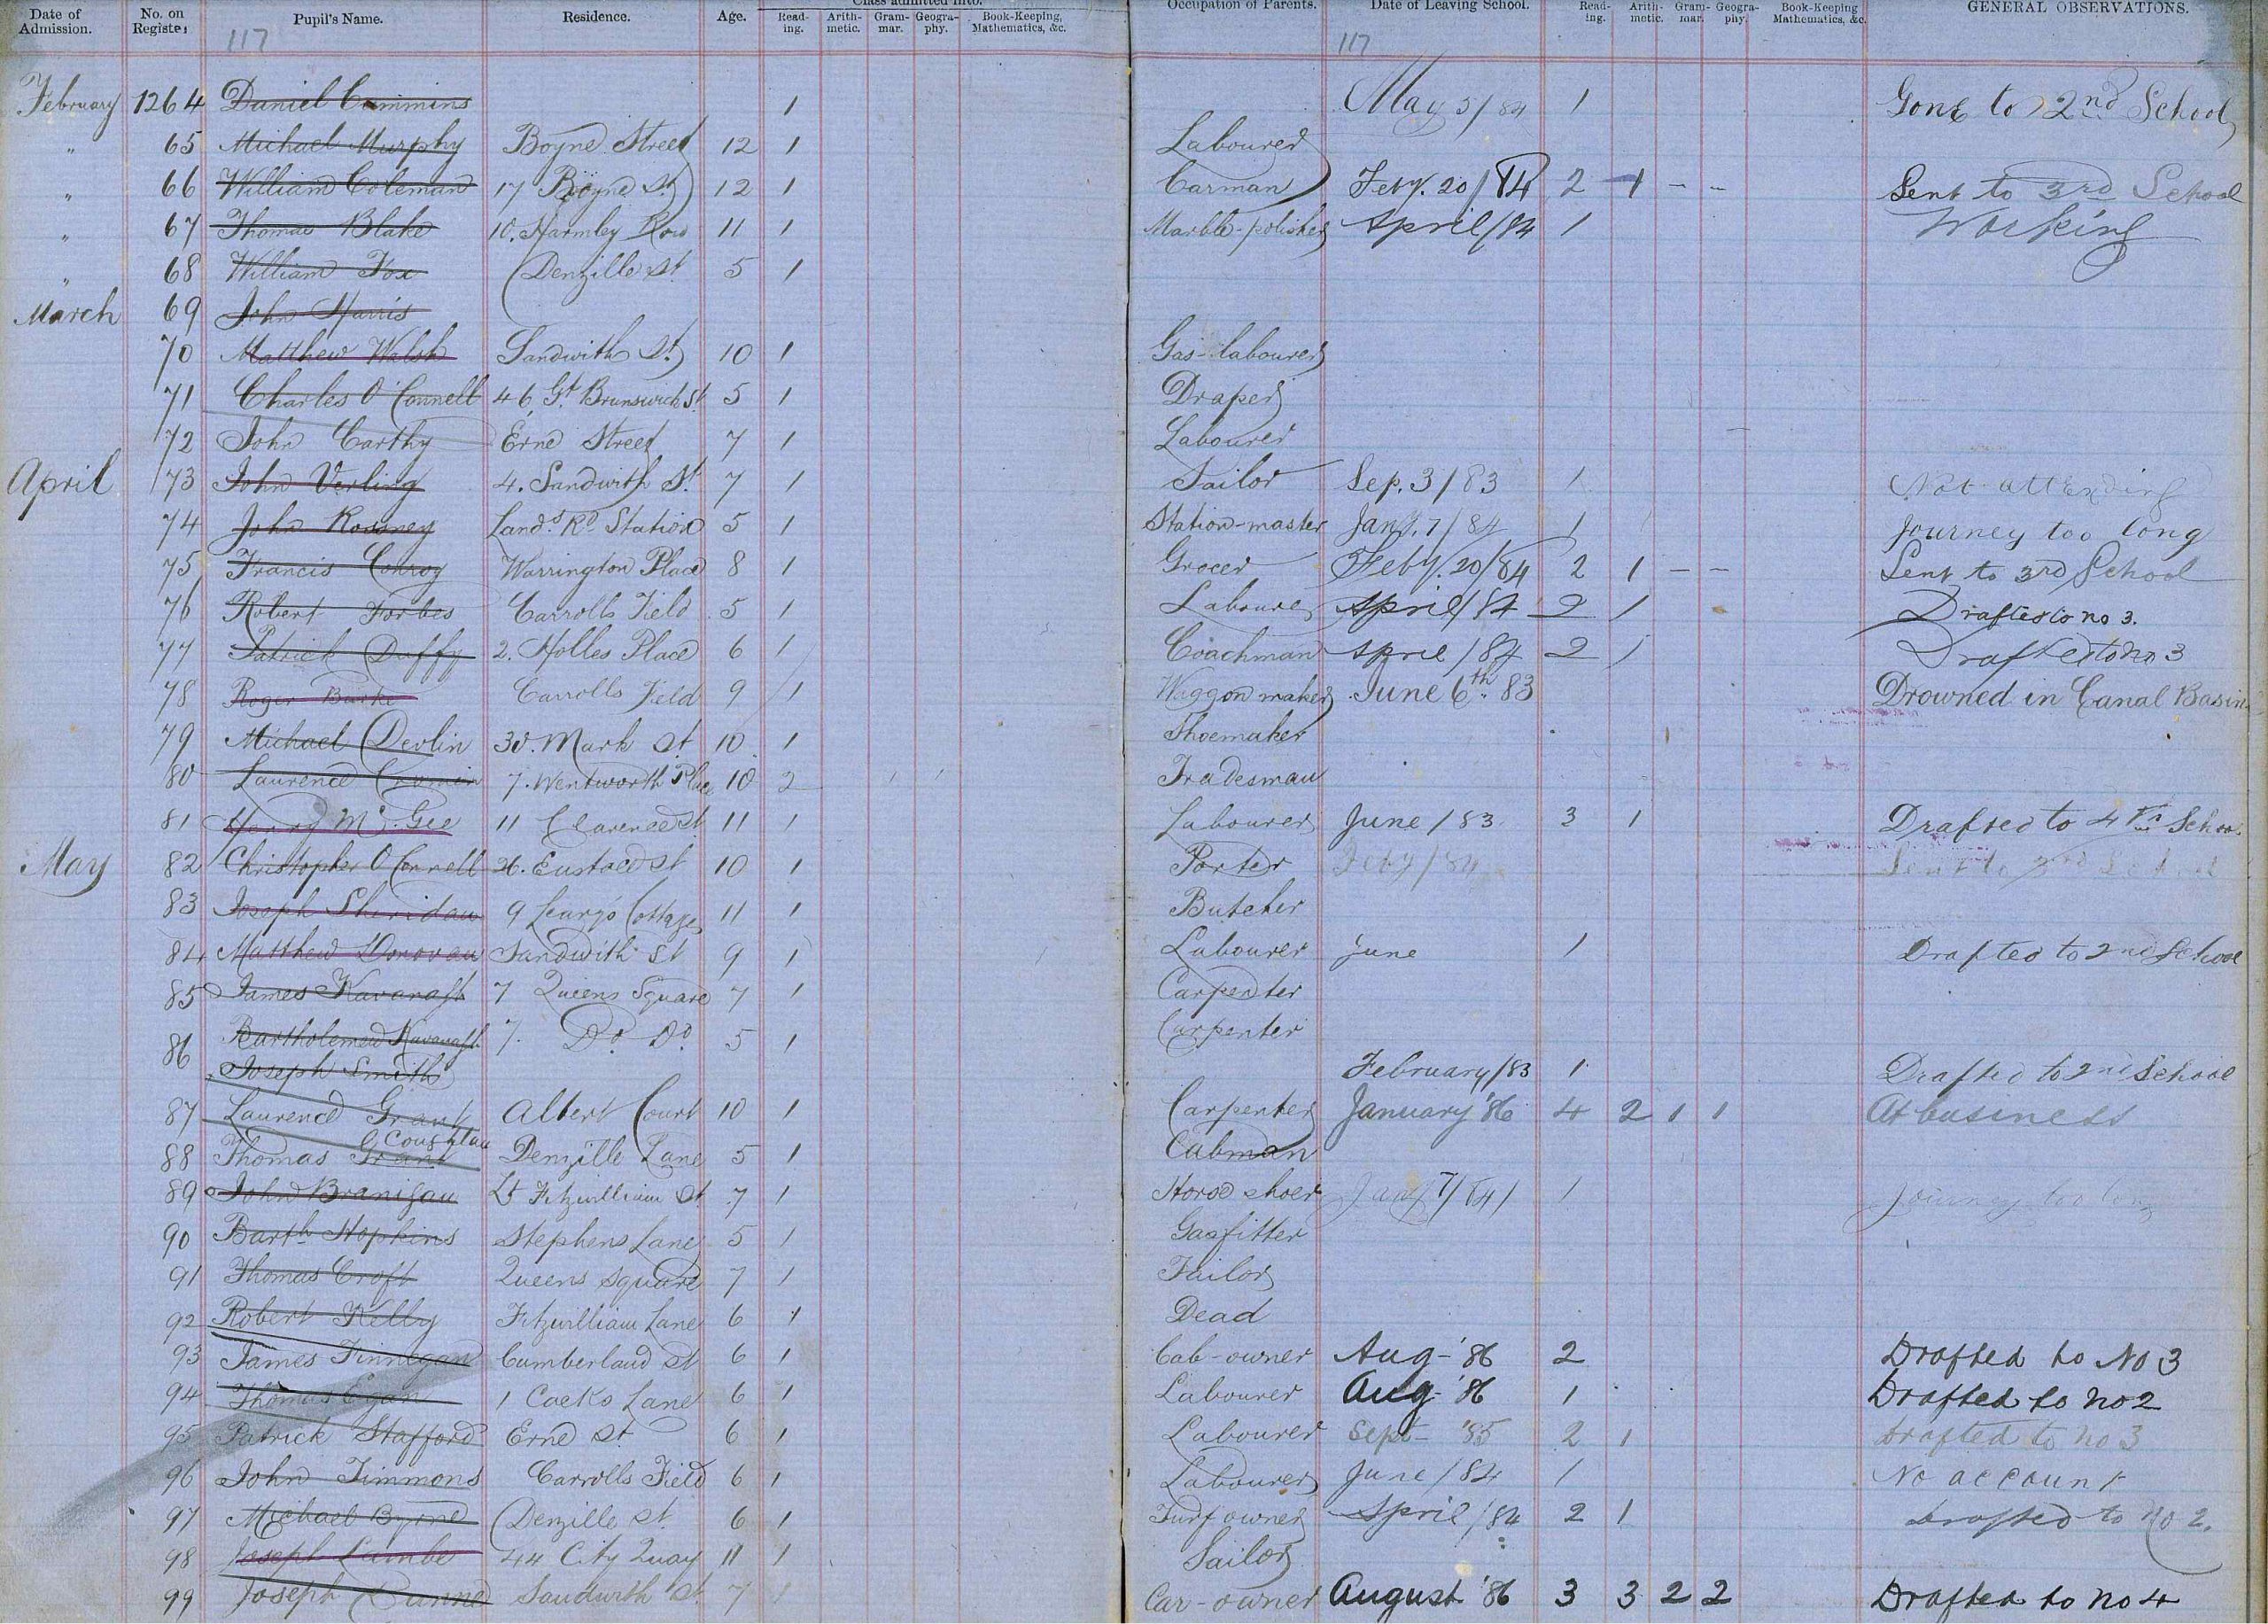 Date of Admission. No. on Register Pupil's Name. Residence. Age. Class admitted into. Reading. Arithmetic. Grammar. Geography. Book-Keeping, Mathematics, &c. Occupation of Parents. Date of Leaving School. Reading. Arithmetic. Grammar. Geography. Book-Keeping Mathematics, &c. GENERAL OBSERVATIONS.
117 117
February 1264 Daniel Cummins 1 May 5/84 1 Gone to 2nd School
" 65 Michael Murphy Boyne Street 12 1 Labourer
" 66 William Coleman 17 Boyne St 12 1 Carman Feby. 20/84 2 1 - - Sent to 3rd School
" 67 Thomas Blake 10. Harmley Row 11 1 Marble-polisher April/84 1 Working
" 68 William Fox Denzille St. 5 1
March 69 John Harris
70 Matthew Walsh Sandwith St. 10 1 Gas-labourer
71 Charles O'Connell 46 Gt. Brunswick St. 5 1 Draper
72 John Carthy Erne Street 7 1 Labourer
April 73 John Verling 4. Sandwith St. 7 1 Sailor Sep. 3/83 1 Not attending
74 John Rooney Landsd Rd Station 5 1 Station-master Jany. 7/84 1 Journey too long
75 Francis Conroy Warrington Place 8 1 Grocer Feby. 20/84 2 1 - - Sent to 3rd School
76 Robert Forbes Carrolls Field 5 1 Labourer April/84 2 1 Drafted to no 3.
77 Patrick Duffy 2. Holles Place 6 1 Coachman April/84 2 1 Drafted to no 3
78 Roger Burke Carrolls Field 9 1 Waggon maker June 6th 83 Drowned in Canal Basin
79 Michael Devlin 30. Mark St 10 1 Shoemaker
80 Laurence Cromien 7. Wentworth Place 10 2 Tradesman
81 Henry McGee 11 Clarence St 11 1 Labourer June/83 3 1 Drafted to 4th School
May 82 Christopher O'Connell 26. Eustace St 10 1 Porter Feby/84 Sent to 3rd School
83 Joseph Sheridan 9 Cottage 11 1 Butcher
84 Matthew Donovan Sandwith St 9 1 Labourer June 1 Drafted to 2nd School
85 James Kavanagh 7 Queens Square 7 1 Carpenter
86 Bartholemew Kavanagh 7. Do. Do. 5 1 Carpenter
Joseph Smith February/83 1 Drafted to 2nd School
87 Laurence Grant Albert Court 10 1 Carpenter January '86 4 2 1 1 At business
88 Thomas Grant Coughlan Denzille Lane 5 1 Cabman
89 John Branigan Lr Fitzwilliam St. 7 1 Horse shoer Jany 7/84 1 Journey too long
90 Barth Hopkins Stephens Lane 5 1 Gasfitter
91 Thomas Croft Queens Square 7 1 Tailor
92 Robert Kelly Fitzwilliam Lane 6 1 Dead
93 James Finnegan Cumberland St 6 1 Cab-owner Aug-'86 2 Drafted to No 3
94 Thomas Egan 1 Lane 6 1 Labourer Aug-'86 1 Drafted to no 2
95 Patrick Stafford Erne St. 6 1 Labourer Sept-'85 2 1 Drafted to no 3
96 John Timmons Carrolls Field 6 1 Labourer June/84 1 No account
97 Michael Byrne Denzille St. 6 1 Turf owner April/84 2 1 Drafted to No 2.
98 Joseph Lambe 44 City Quay 11 1 Sailor
99 Joseph Dunne Sandwith St. 7 1 Car-owner August '86 3 3 2 2 Drafted to no 4